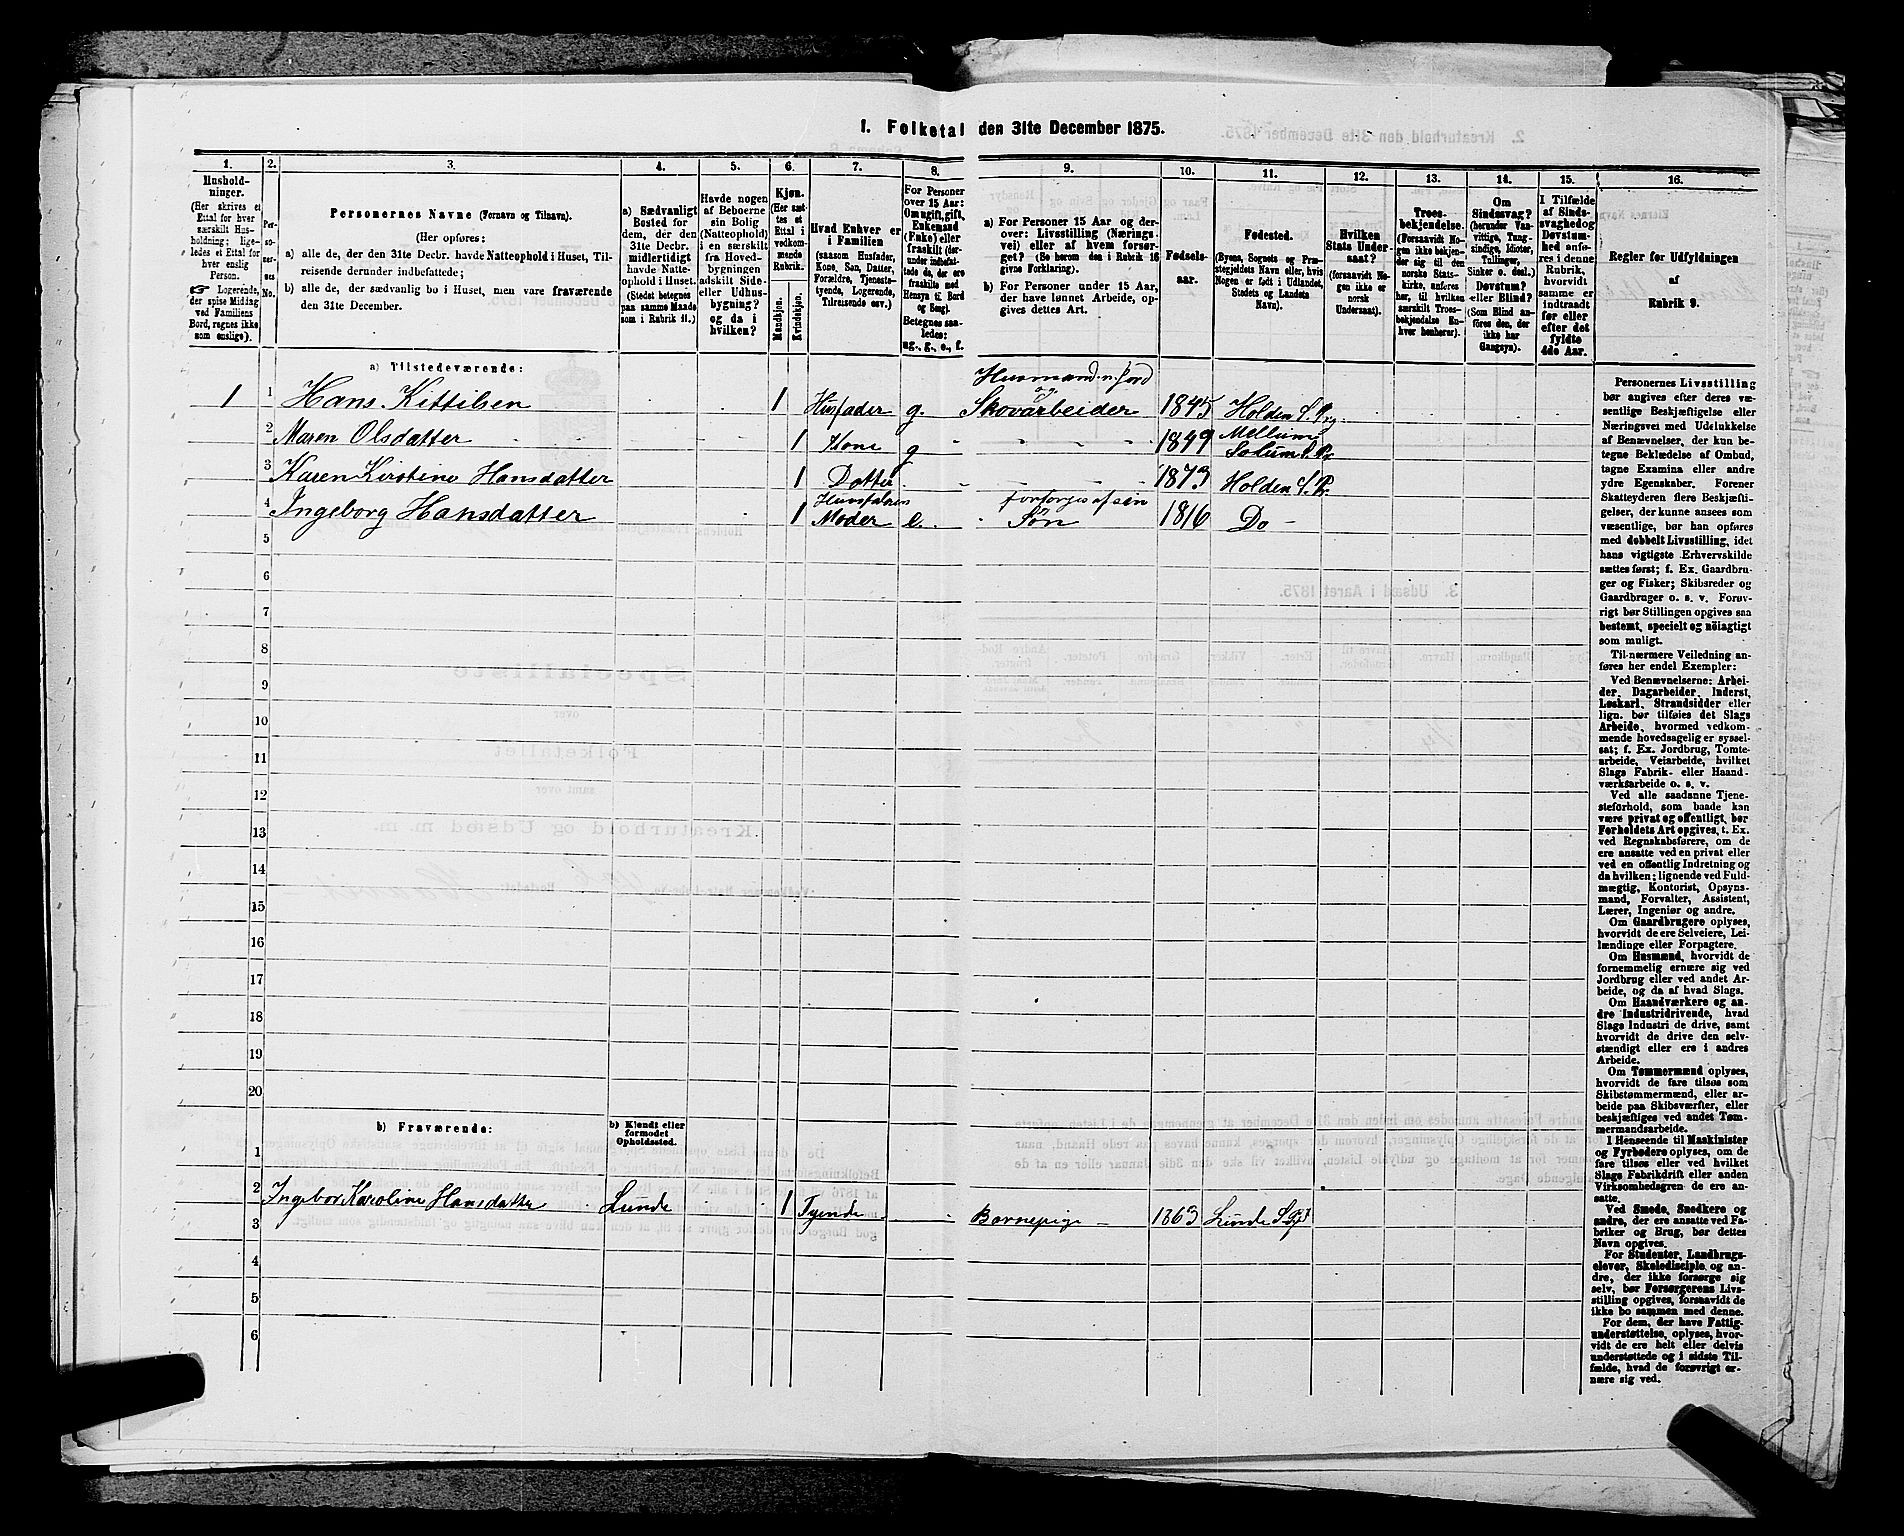 1. Folketal den 31te December 1875.
1.
2.
3.
4.
5.
6.
7.
8.
9.
10.
11.
12.
13.
14.
15.
16.
Hushold-
ninger.
(Her skrives et
Ettal for hver
særskilt Hus-
holdning; lige-
ledes et Ettal for
hver enslig
Person.
☞ Logerende,
der spise Middag
ved Familiens
Bord, regnes ikke
som enslige).
Per-
so-
ner-
nes
No.
Personernes Navne (Fornavn og Tilnavn).
(Her opføres:
a) alle de, der den 31te Decbr. havde Natteophold i Huset, Til-
reisende derunder indbefattede;
b) alle de, der sædvanlig bo i Huset, men vare fraværende
den 31te December.
a) Sædvanligt
Bosted for
dem, der den
31te Decbr.
midlertidigt
havde Natte-
ophold i Huset.
(Stedet betegnes
paa samme Maade
som i Rubrik 11.)
Havde nogen
af Beboerne
sin Bolig
(Natteophold)
i en særskilt
fra Hoved-
bygningen
adskilt Side-
eller Udhus-
bygning?
og da i
hvilken?
Kjøn.
(Her sæt-
tes et
Ettal i
vedkom-
mende
Rubrik.
Mandkjøn.
Kvindekjøn.
Hvad Enhver er
i Familien
(saasom Husfader,
Kone, Søn, Datter,
Forældre, Tjeneste-
tyende, Logerende,
Tilreisende osv.)
For Personer
over 15 Aar:
Om ugift, gift,
Enkemand
(Enke) eller
fraskilt (der-
under indbefat-
tede de, der ere
fraskilte med
Hensyn til Bord
og Seng).
Betegnes saa-
ledes:
ug., g., e., f.
a) For Personer 15 Aar og der-
over: Livsstilling (Nærings-
vei) eller af hvem forsør-
get? (Se herom den i Rubrik 16
givne Forklaring).
b) For Personer under 15 Aar,
der have lønnet Arbeide, op-
gives dettes Art.
Fødsels-
aar.
Fødested.
(Byens, Sognets og Præ-
stegjeldets Navn eller, hvis
Nogen er født i Udlandet,
Stedets og Landets
Navn).
Hvilken
Stats Under-
saat?
(forsaavidt No-
gen ikke er
norsk
Undersaat).
Troes-
bekjendelse.
(Forsaavidt No-
gen ikke bekjen-
der sig til den
norske Stats-
kirke, anføres
her, til hvilken
særskilt Troes-
bekjendelse En-
hver henhører).
Om
Sindssvag?
(herunder Van-
vittige, Tung-
sindige, Idioter,
Tullinger,
Sinker o. desl.)
Døvstum?
eller Blind?
(Som Blind an-
føres den, der
ikke har
Gangsyn).
I Tilfælde
af Sinds-
svaghed og
Døvstum-
hed anfø-
res i denne
Rubrik,
hvorvidt
samme er
indtraadt
før eller
efter det
fyldte
4de Aar.
Regler for Udfyldningen
af
Rubrik 9.
a) Tilstedeværende:
Husmand m. Jord
1 1 Hans Kittilsen 1 Husfader g. og Skovarbeider 1845 Holden S. Prg
2 Maren Olsdatter 1 Kone g 1849 Mellum Solum S. Pr
3 Karen Kirstine Hansdatter 1 Dotter 1873 Holden S. Pr.
4 Ingeborg Hansdatter 1 Husfaders Moder e. forsørges af sin Søn 1816 Do
5
6
7
8
9
10
11
12
13
14
15
16
17
18
19
20
b) Fraværende:
b) Kjendt eller
formodet
Opholdssted.
1
2 Ingebor Karoline Hansdatter Lunde 1 Tyende Barnepige 1863 Lunde S Pgt
3
4
5
6
Personernes Livsstilling
bør angives efter deres væ-
sentlige Beskjæftigelse eller
Næringsvei med Udelukkelse
af Benævnelser, der kun be-
tegne Beklædelse af Ombud,
tagne Examina eller andre
ydre Egenskaber. Forener
Skatteyderen flere Beskjæfti-
gelser, der kunne ansees som
væsentlige, bør han opføres
med dobbelt Livsstilling, idet
hans vigtigste Erhvervskilde
sættes først; f. Ex. Gaardbru-
ger og Fisker; Skibsreder og
Gaardbruger o. s. v. Forøv-
rigt bør Stillingen opgives saa
bestemt, specielt og nöiagtigt
som muligt.
Til nærmere Veiledning an-
føres her endel Exempler:
Ved Benævnelserne: Arbei-
der, Dagarbeider, Inderst,
Løskarl, Strandsidder eller
lign. bør tilføies det Slags
Arbeide, hvormed vedkom-
mende hovedsagelig er syssel-
sat; f. Ex. Jordbrug, Tomte-
arbeide, Veiarbeide, hvilket
Slags Fabrik- eller Haand-
værksarbeide o. s. v.
Ved alle saadanne Tjene-
steforhold, som baade kan
være privat og offentligt, bør
Forholdets Art opgives, t. Ex.
ved Regnskabsførere, om de
ere ansatte ved en privat eller
ved en offentlig Indretning og
da hvilken; lignende ved Fuld-
mægtig, Kontorist, Opsyns-
mand, Forvalter, Assistent,
Lærer, Ingeniør og andre.
Om Gaardbrugere oplyses,
hvorvidt de ere Selveiere, Lei-
lændinge eller Forpagtere.
Om Husmænd, hvorvidt de
fornemmelig ernære sig ved
Jordbrug eller ved andet Ar-
beide, og da af hvad Slags.
Om Haandværkere og an-
dre Industridrivende, hvad
Slags Industri de drive, samt
hvorvidt de drive den selv-
stændigt eller ere i andres
Arbeide.
Om Tømmermænd oplyses,
hvorvidt de fare tilsøs som
Skibstømmermænd, eller ar-
beide paa Skibsværfter, eller
beskjæftiges ved andet Tøm-
mermandsarbeide.
I Henseende til Maskinister
og Fyrbødere oplyses, om de
fare tilsøs eller ved hvilket
Slags Fabrikdrift eller anden
Virksomhedsgren de ere an-
satte.
Ved Smede, Snedkere og
andre, der ere ansatte ved Fa-
briker og Brug, bør dettes
Navn opgives.
For Studenter, Landbrugs-
elever, Skoledisciple og an-
dre, der ikke forsørge sig
selv, bør Forsørgerens Livs-
stilling opgives, forsaavidt de
ikke bo sammen med denne.
For dem, der have Fattig-
understøttelse, oplyses, hvor-
vidt de ere helt eller delvis
understøttede og i sidste Til-
fælde, hvad de forøvrigt er-
nære sig ved.